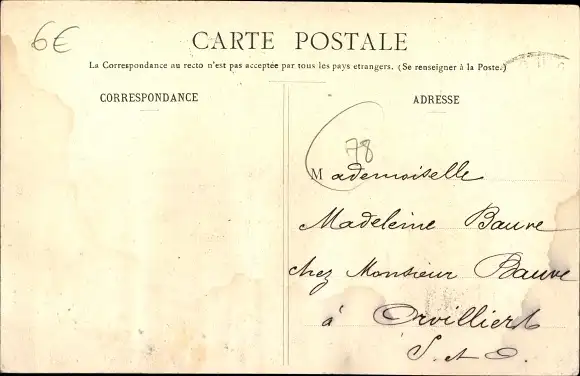 6€
CARTE POSTALE
La Correspondance au recto n'est pas acceptée par tous les pays etrangers. (Se renseigner à la Poste.)
CORRESPONDANCE
ADRESSE
78
Mademoiselle
Madeleine Bauve
chez Monsieur Bauve
à Orvilliers
S. et O.